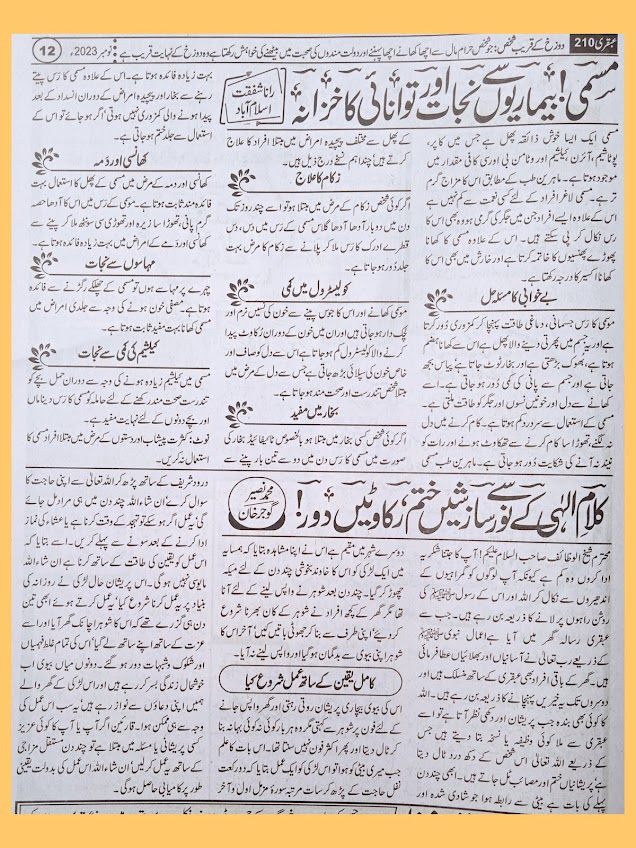 عبقری 210
دوزخ کے قریب شخص: جو شخص حرام مال سے اچھا کھانے اچھا پہننے اور دولت مندوں کی صحبت میں بیٹھنے کی خواہش رکھتا ہے وہ دوزخ کے نہایت قریب ہے
نومبر 2023ء
12
مسمی! بیماریوں سے نجات اور توانائی کا خزانہ
رانا شفقت
اسلام آباد
مسمی ایک ایسا خوش ذائقہ پھل ہے جس میں کاپر،
پوٹاشیم، آئرن، کیلشیم اور وٹامن بی اور سی کافی مقدار میں
موجود ہوتا ہے۔ ماہرین طب کے مطابق اس کا مزاج گرم
تر ہے۔ مسمی لاغر افراد کے لئے کسی نعمت سے کم نہیں ہے
اس کے علاوہ ایسے افراد جن میں جگر کی گرمی ہو وہ بھی اس کا
رس نکال کر پی سکتے ہیں۔ اس کے علاوہ مسمی کا کھانا
پھوڑے پھنسیوں کا خاتمہ کرتا ہے اور خارش میں بھی اس کا
کھانا اکسیر کا درجہ رکھتا ہے۔
بے خوابی کا مسئلہ حل
موسمی کا رس جسمانی، دماغی طاقت پہنچا کر کمزوری دُور کرتا
ہے اور یہ جسم میں پھرتی دینے والا پھل ہے اس سے کھانا ہضم
ہوتا ہے، بھوک بڑھتی ہے اور بخار ٹوٹ جاتا ہے پیاس بجھ
جاتی ہے اور جسم سے پانی کی کمی دُور ہو جاتی ہے۔ اسے
کھانے سے دل اور خونیں نسوں اور جگر کو طاقت ملتی ہے۔
مسمی کے استعمال سے سر درد کم ہوتا ہے۔ کام کرنے میں دل
نہ لگنے، تھوڑا سا کام کرنے سے تھکاوٹ ہونے اور رات کو
نیند نہ آنے کی شکایت دُور ہو جاتی ہے۔ ماہرین طب مسمی
کے پھل سے مختلف پیچیدہ امراض میں مبتلا افراد کا علاج
کرتے ہیں چند اہم نسخے درج ذیل ہیں۔
زکام کا علاج
اگر کوئی شخص زکام کے مرض میں مبتلا ہو تو اسے چند روز تک
دن میں دو بار آدھا آدھا گلاس مسمی کے رس میں دس، دس
قطرے ادرک کا رس ملا کر پلانے سے زکام کا مرض بہت
جلد دُور ہو جاتا ہے۔
کولیسٹرول میں کمی
موسمی کھانے اور اس کا جوس پینے سے خون کی نسیں نرم اور
لچک دار ہو جاتی ہیں اور ان میں خون کے دوران رُکاوٹ پیدا
کرنے والا کولیسٹرول کم ہو جاتا ہے اس سے دل کو صاف اور
خالص خون کی سپلائی بڑھ جاتی ہے جس سے دل کے مرض میں
مبتلا شخص تندرست اور صحت مند ہو جاتا ہے۔
بخار میں مفید
اگر کوئی شخص کسی بخار میں مبتلا ہو بالخصوص ٹائیفائیڈ بخار کی
صورت میں مسمی کا رس دن میں دو سے تین بار پینے سے
بہت زیادہ فائدہ ہوتا ہے۔ اس کے علاوہ مسمی کا رس پیتے
رہنے سے بخار اور پیچیدہ امراض کے دوران انسداد کے بعد
پیدا ہونے والی کمزوری نہیں ہوتی اگر ہو جائے تو اس کے
استعمال سے جلد ختم ہو جاتی ہے۔
کھانسی اور دمہ
کھانسی اور دمہ کے مرض میں مسمی کے پھل کا استعمال بہت
فائدہ مند ثابت ہوتا ہے۔ موسمی کے رس میں اس کا آدھا حصہ
گرم پانی، تھوڑا سا زیرہ اور تھوڑی سی سونٹھ ملا کر پینے سے
کھانسی اور دمے کے امراض میں بہت زیادہ فائدہ ہوتا ہے۔
مہاسوں سے نجات
چہرے پر مہاسے ہوں تو مسمی کے چھلکے رگڑنے سے فائدہ
ہوتا ہے۔ مصفی خون ہونے کی وجہ سے جلدی امراض میں
مسمی کھانا بہت مفید ثابت ہوتا ہے۔
کیلشیم کی کمی سے نجات
مسمی میں کیلشیم زیادہ ہونے کی وجہ سے دوران حمل بچے کو
تندرست صحت مند رکھنے کے لئے حاملہ کو مسمی کا رس دینا ماں
اور بچے دونوں کے لئے نہایت مفید ہے۔
نوٹ: کثرت پیشاب اور دستوں کے مرض میں مبتلا افراد مسمی کا
استعمال نہ کریں۔
کلام الٰہی کے نور سے سازشیں ختم، رکاوٹیں دور!
محمد نصیر
گوجر خان
محترم شیخ الوظائف صاحب السلام علیکم! آپ کا جتنا شکریہ
ادا کروں وہ کم ہے کیونکہ آپ لوگوں کو گمراہیوں کے
اندھیروں سے نکال کر اللہ اور اس کے رسول ﷺ کی
روشن راہوں پر لانے کا ذریعہ بن رہے ہیں۔ جب سے
عبقری رسالہ گھر میں آیا ہے اعمال نبوی ﷺ
کے ذریعے رب تعالیٰ نے آسانیاں اور بھلائیاں عطا فرمائی
ہیں۔ گھر کے باقی افراد بھی عبقری کے ساتھ منسلک ہیں اور
دوسروں تک یہ خیریں پہنچانے کا ذریعہ بن رہا ہے۔ اس
کا کوئی بھی بندہ جب پریشان اور دکھی نظر آتا ہے تو اسے
عبقری سے ملا کوئی وظیفہ یا نسخہ بتا دیتے ہیں جس
کے ذریعے اللہ تعالیٰ اس شخص کے دکھ درد ٹال دیتا
ہے پریشانیاں ختم اور مصائب ٹل جاتے ہیں۔ ابھی چند دن
پہلے کی بات ہے بیٹی سے رابطہ ہوا جو شادی شدہ اور
دوسرے شہر میں مقیم ہے اس نے اپنا مشاہدہ بتایا کہ ہمسایہ
میں ایک لڑکی کو اس کا خاوند بخوشی چند دن کے لئے میکہ
چھوڑ کر گیا۔ چند دن بعد شوہر نے واپس لینے کے لئے آنا
تھا مگر گھر کے کچھ افراد نے شوہر کے کان بھرنا شروع
کر دیئے اپنی طرف سے بنا کر جھوٹی باتیں کیں، آخر اس کا
شوہر اپنی بیوی سے بدگمان ہو گیا اور واپس لینے نہ آیا۔
کامل یقین کے ساتھ عمل شروع کیا
اس کی بیوی بیچاری پریشان روتی رہتی اور گھر واپس جانے
کے لئے فون پر شوہر سے کہتی مگر وہ ہر بار کوئی نہ کوئی بہانہ بنا
کر ٹال دیتا اور پھر اکثر فون نہیں سنتا تھا۔ اس بات کا علم
جب میری بیٹی کو ہوا تو اس لڑکی کو ایک عمل بتایا کہ دو رکعت
نفل حاجت کے پڑھ کر سات مرتبہ سورۃ مزمل اول و آخر
درود شریف کے ساتھ پڑھ کر اللہ تعالیٰ سے اپنی حاجت کا
سوال کرے ان شاء اللہ چند دن میں ہی مراد مل جائے
گی یہ عمل اگر ہو سکے تو تہجد کے وقت کرنا ہے یا عشاء کی نماز
ادا کرنے کے بعد سونے سے پہلے کریں۔ اسے بتایا کہ
اس عمل کو یقین کی طاقت کے ساتھ کرنا ہے ان شاء اللہ
مایوسی نہیں ہو گی۔ اس پریشان حال لڑکی نے روزانہ کی
بنیاد پر یہ عمل کرنا شروع کیا، یہ عمل کرتے ہوئے ابھی تین
دن ہی گزرے تھے کہ اس کا شوہر اچانک گھر آیا اور اسے
عزت کے ساتھ اپنے ساتھ لے گیا اس کی تمام غلط فہمیاں
اور شکوک و شبہات دور ہو گئے۔ دونوں میاں بیوی اب
خوشحال زندگی بسر کر رہے ہیں اور اس لڑکی کے گھر والے
ہمیں اپنی دعاؤں سے نواز رہے ہیں یہ سب اس عمل کی
وجہ سے ہی ممکن ہوا۔ قارئین اگر آپ یا آپ کا کوئی عزیز
کسی پریشانی یا مسئلہ میں مبتلا ہے تو چند دن مستقل مزاجی
کے ساتھ یہ عمل کر لیں ان شاء اللہ اس عمل کی بدولت یقینی
طور پر کامیابی حاصل ہو گی۔